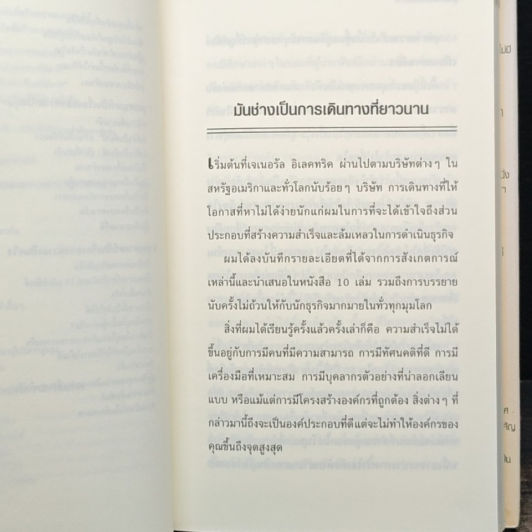 มันช่างเป็นการเดินทางที่ยาวนาน
เริ่มต้นที่เจเนอรัล อิเลคทริค ผ่านไปตามบริษัทต่างๆ ใน
สหรัฐอเมริกาและทั่วโลกนับร้อยๆ บริษัท การเดินทางที่ให้
โอกาสที่หาไม่ได้ง่ายนักแก่ผมในการที่จะได้เข้าใจถึงส่วน
ประกอบที่สร้างความสำเร็จและล้มเหลวในการดำเนินธุรกิจ
ผมได้ลงบันทึกรายละเอียดที่ได้จากการสังเกตการณ์
เหล่านี้และนำเสนอในหนังสือ 10 เล่ม รวมถึงการบรรยาย
นับครั้งไม่ถ้วนให้กับนักธุรกิจมากมายในทั่วทุกมุมโลก
สิ่งที่ผมได้เรียนรู้ครั้งแล้วครั้งเล่าก็คือ ความสำเร็จไม่ได้
ขึ้นอยู่กับการมีคนที่มีความสามารถ การมีทัศนคติที่ดี การมี
เครื่องมือที่เหมาะสม การมีบุคลากรตัวอย่างที่น่าลอกเลียน
แบบ หรือแม้แต่การมีโครงสร้างองค์กรที่ถูกต้อง สิ่งต่างๆ ที่
กล่าวมานี้ถึงจะเป็นองค์ประกอบที่ดีแต่จะไม่ทำให้องค์กรของ
คุณขึ้นถึงจุดสูงสุด